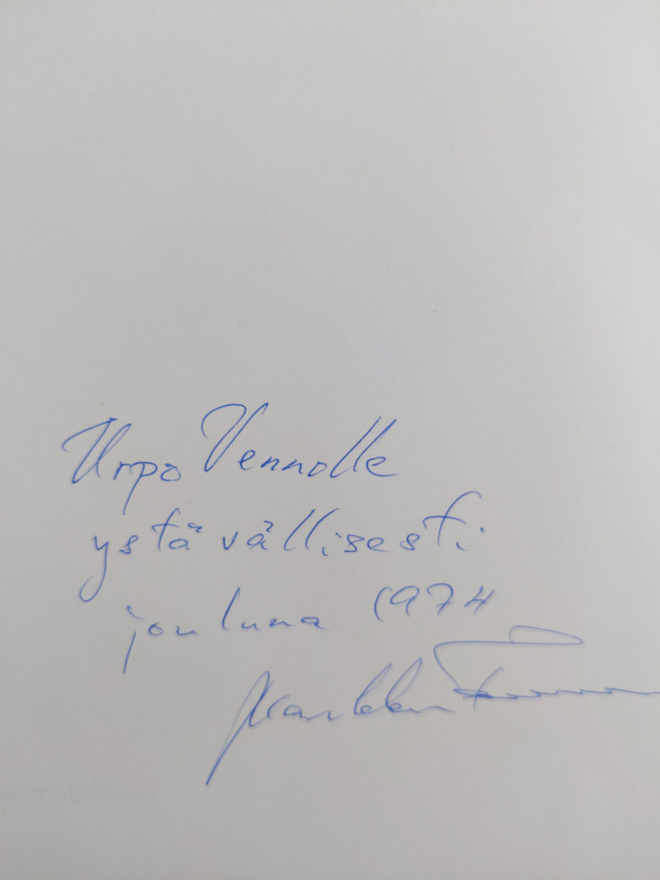 Urpo Vennolle
ystävällisesti
jouluna 1974
Markku